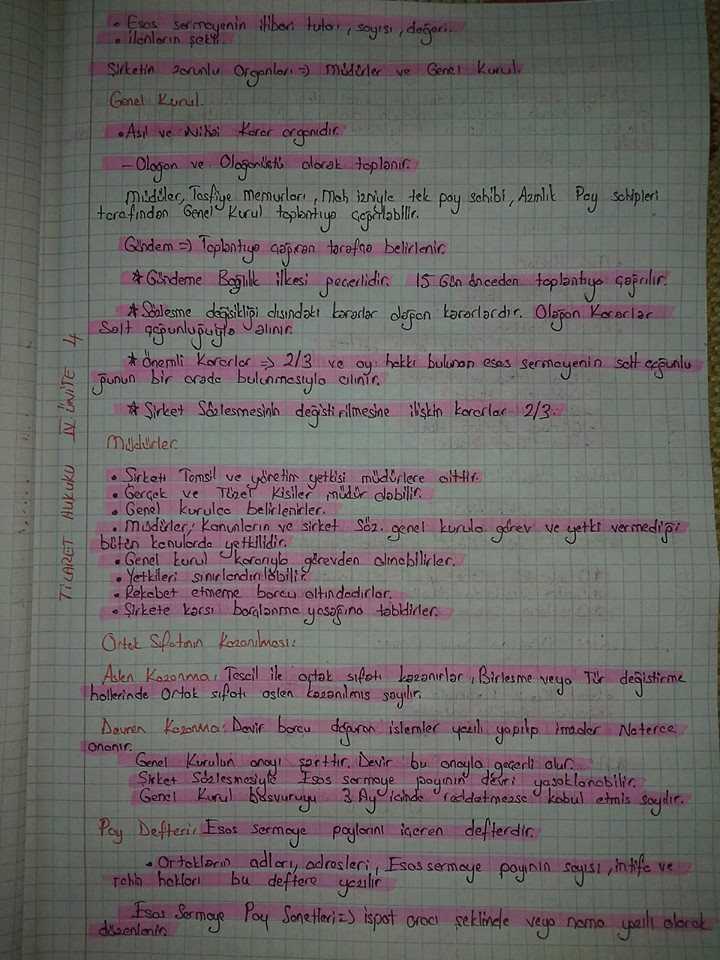 • Esas sermayenin itibari tutarı, sayısı, değeri.
• ilanların şekli.
Şirketin zorunlu Organları => Müdürler ve Genel Kurul.
Genel Kurul.
• Asıl ve Nihai Karar organıdır.
- Olağan ve Olağanüstü olarak toplanır.
Müdüler, Tasfiye memurları, Mah izniyle tek pay sahibi, Azınlık Pay sahipleri
tarafından Genel Kurul toplantıya çağrılabilir.
Gündem => Toplantıya çağıran tarafça belirlenir.
* Gündeme Bağlılık ilkesi geçerlidir. 15 Gün önceden toplantıya çağrılır.
* Sözleşme değişikliği dışındaki kararlar olağan kararlardır. Olağan Kararlar
Salt çoğunluğuyla alınır.
* önemli Kararlar => 2/3 ve oy hakkı bulunan esas sermayenin salt çoğunlu
ğunun bir arada bulunmasıyla alınır.
* Şirket Sözleşmesinin değiştirilmesine ilişkin kararlar 2/3.
Müdürler
• Şirketi Temsil ve yönetim yetkisi müdürlere aittir.
• Gerçek ve Tüzel Kişiler müdür olabilir.
• Genel kurulca belirlenirler.
• Müdürler; Kanunların ve şirket Söz. genel kurula görev ve yetki vermediği
bütün konularda yetkilidir.
• Genel kurul kararıyla görevden alınabilirler.
• Yetkileri sınırlandırılabilir.
• Rekabet etmeme borcu altındadırlar.
• Şirkete karşı borçlanma yasağına tabidirler.
Ortak Sıfatının Kazanılması:
Aslen Kazanma: Tescil ile ortak sıfatı kazanırlar, Birleşme veya Tür değiştirme
hallerinde Ortak sıfatı aslen kazanılmış sayılır.
Devren Kazanma: Devir borcu doğuran işlemler yazılı yapılıp imzalar Noterce
onanır.
Genel Kurulun onayı şarttır. Devir bu onayla geçerli olur.
Şirket Sözleşmesiyle Esas sermaye payının devri yasaklanabilir.
Genel Kurul başvuruyu 3 Ay içinde reddetmezse kabul etmiş sayılır.
Pay Defteri: Esas sermaye paylarını içeren defterdir.
• Ortakların adları, adresleri, Esas sermaye payının sayısı, intifa ve
rehin hakları bu deftere yazılır
Esas Sermaye Pay Senetleri => ispat aracı şeklinde veya nama yazılı olarak
düzenlenir.
TİCARET HUKUKU IV. ÜNİTE 4